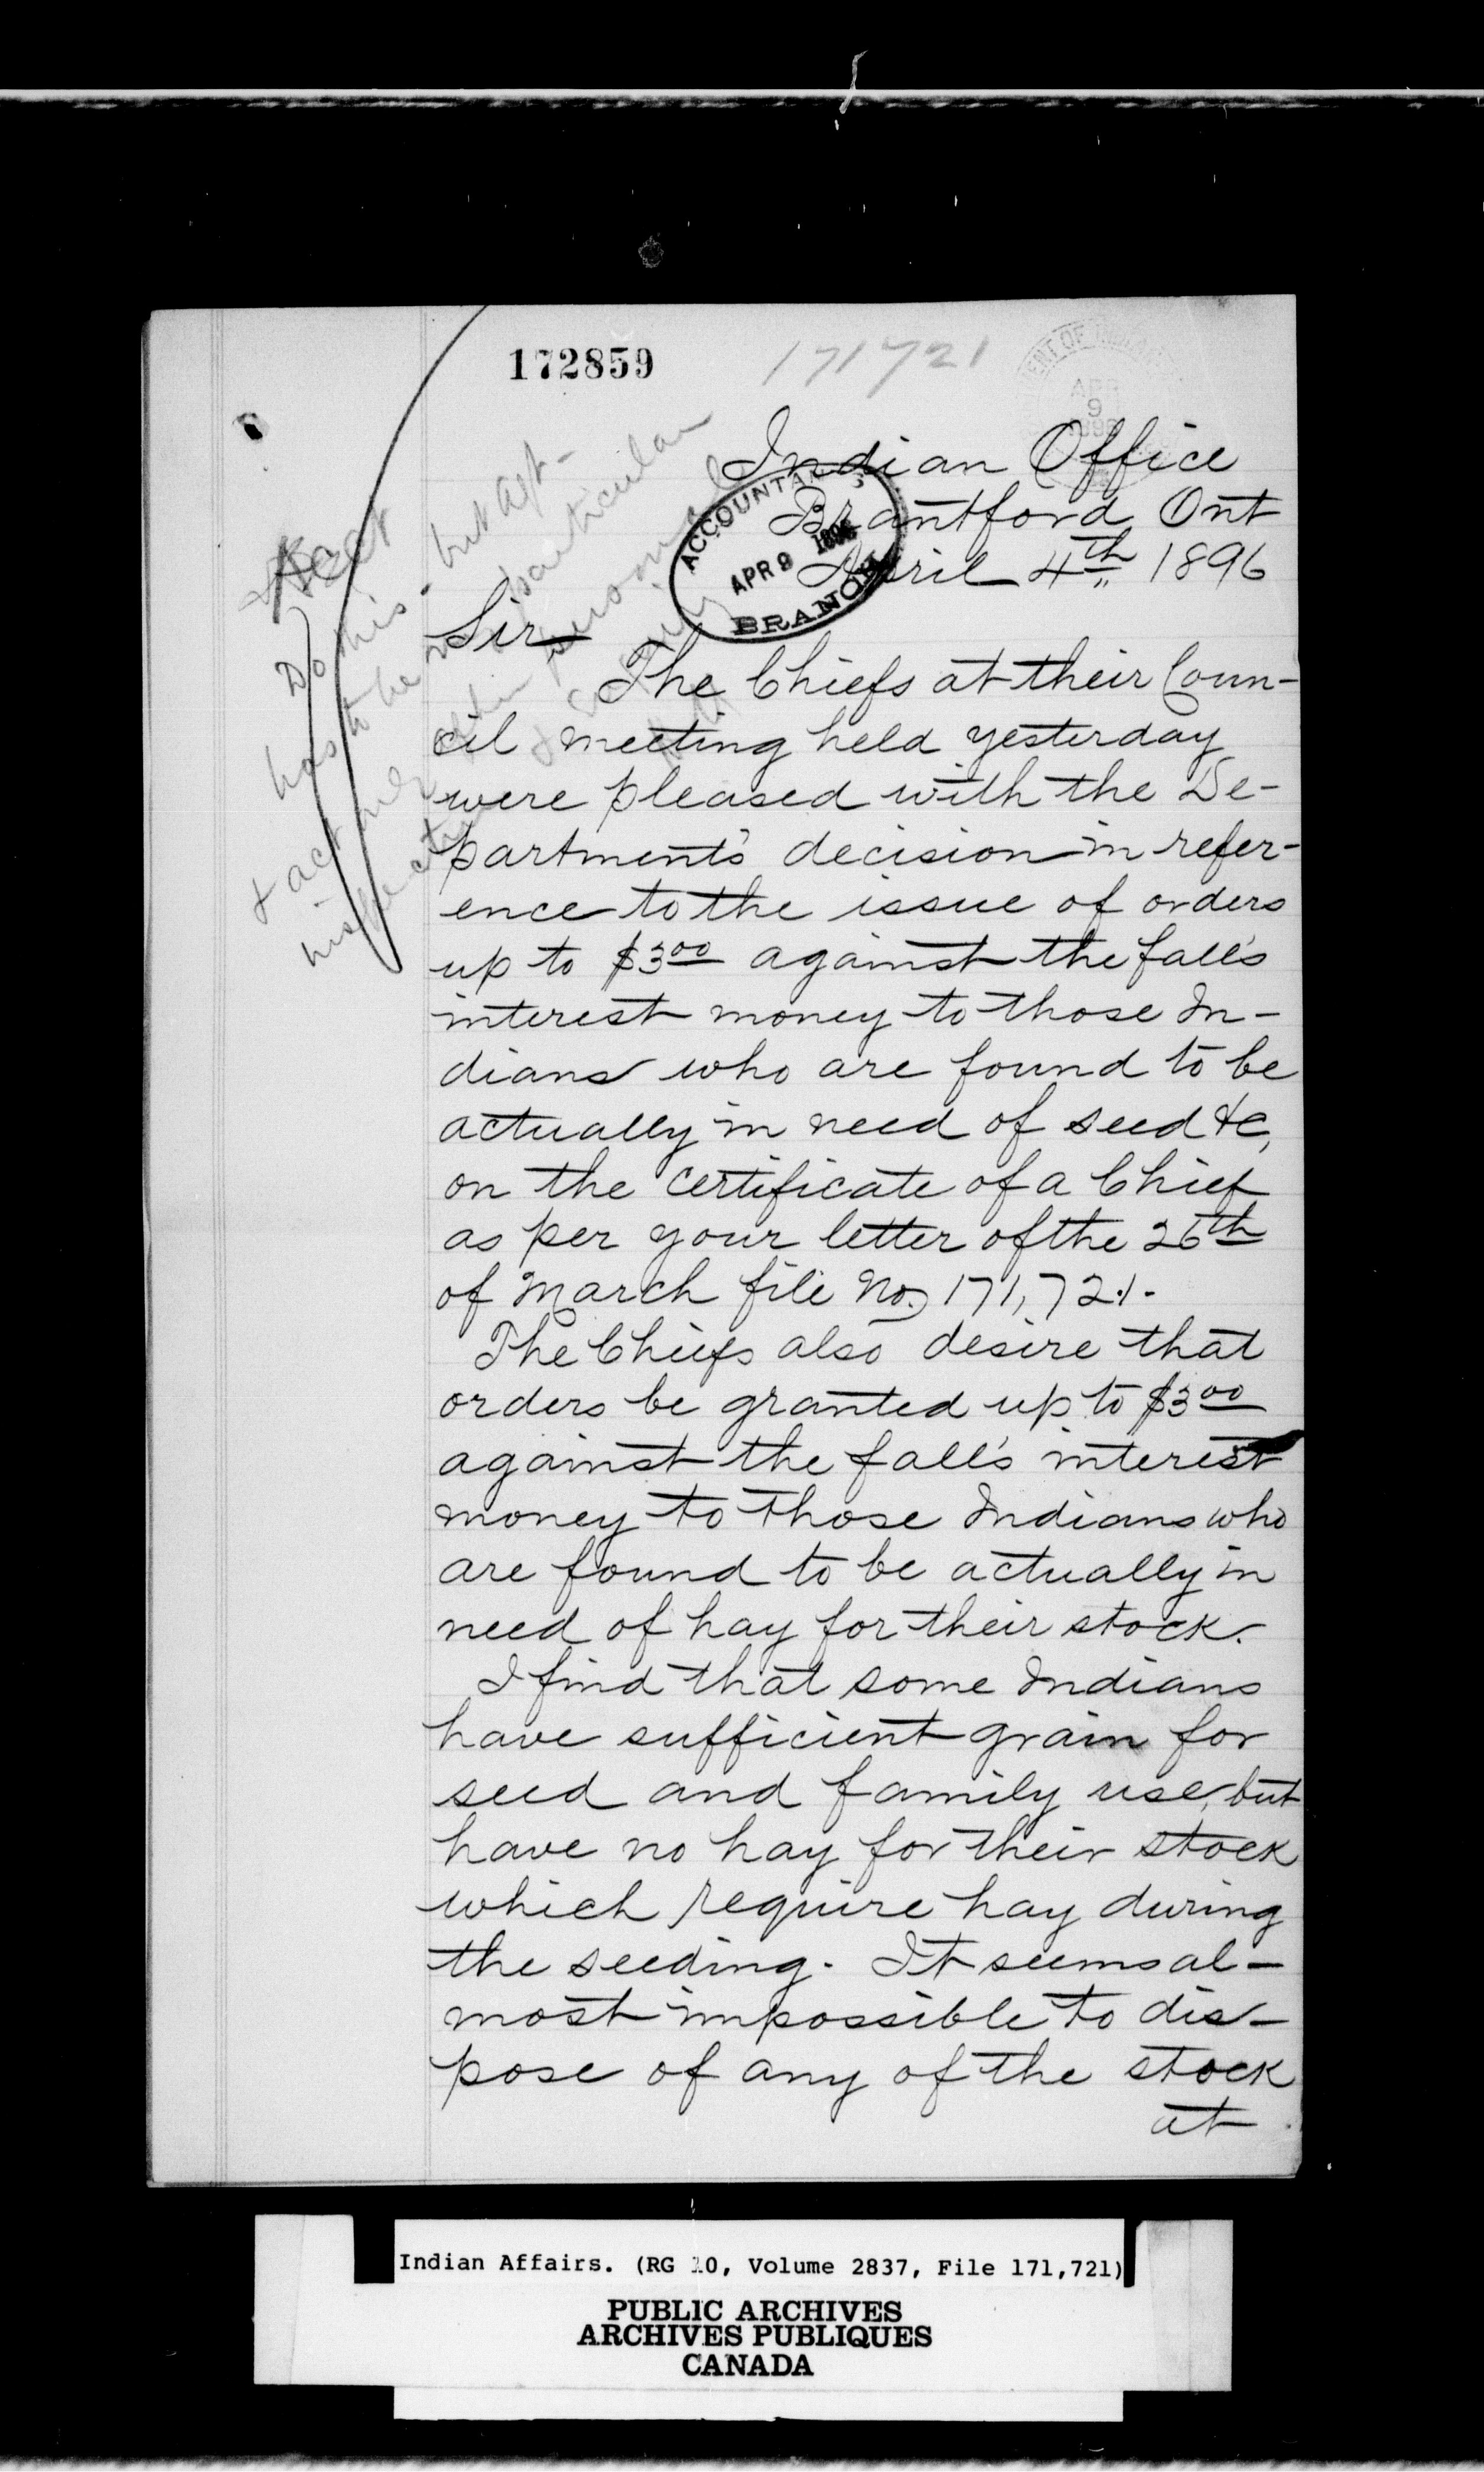 172859
171721
DEPARTMENT OF INDIAN
APR
9
1896
Indian Office
Brantford, Ont
April 4th 1896
ACCOUNTANT'S
APR 9 1896
BRANCH
Acct
Do this but agt
has to be particular
& act
his
Sir
The Chiefs at their Coun-
cil meeting held yesterday
were pleased with the De-
partment's decision in refer-
ence to the issue of orders
up to $3 00 against the fall's
interest money to those In-
dians who are found to be
actually in need of seed &c,
on the certificate of a Chief
as per your letter of the 26th
of March file No. 171,721.
The Chiefs also desire that
orders be granted up to $3 00
against the fall's interest
money to those Indians who
are found to be actually in
need of hay for their stock.
I find that some Indians
have sufficient grain for
seed and family use, but
have no hay for their stock
which require hay during
the seeding. It seems al-
most impossible to dis-
pose of any of the stock
at
Indian Affairs. (RG 10, Volume 2837, File 171,721)
PUBLIC ARCHIVES
ARCHIVES PUBLIQUES
CANADA